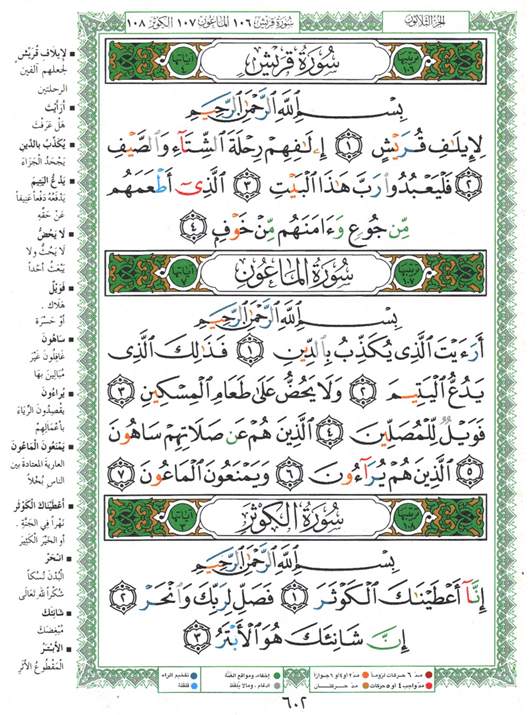 سُورَةُ قُرَيْشٍ ١٠٦ المَاعُونِ ١٠٧ الكَوْثَرِ ١٠٨
الجُزءُ الثَّلَاثُونَ
آيَاتُهَا ٤
سُورَةُ قُرَيْشٍ
تَرْتِيبُهَا ١٠٦
بِسْمِ ٱللَّهِ ٱلرَّحْمَٰنِ ٱلرَّحِيمِ
لِإِيلَٰفِ قُرَيْشٍ ١ إِۦلَٰفِهِمْ رِحْلَةَ ٱلشِّتَآءِ وَٱلصَّيْفِ
٢ فَلْيَعْبُدُوا۟ رَبَّ هَٰذَا ٱلْبَيْتِ ٣ ٱلَّذِىٓ أَطْعَمَهُم
مِّن جُوعٍ وَءَامَنَهُم مِّنْ خَوْفٍۭ ٤
آيَاتُهَا ٧
سُورَةُ المَاعُونِ
تَرْتِيبُهَا ١٠٧
بِسْمِ ٱللَّهِ ٱلرَّحْمَٰنِ ٱلرَّحِيمِ
أَرَءَيْتَ ٱلَّذِى يُكَذِّبُ بِٱلدِّينِ ١ فَذَٰلِكَ ٱلَّذِى
يَدُعُّ ٱلْيَتِيمَ ٢ وَلَا يَحُضُّ عَلَىٰ طَعَامِ ٱلْمِسْكِينِ ٣
فَوَيْلٌ لِّلْمُصَلِّينَ ٤ ٱلَّذِينَ هُمْ عَن صَلَاتِهِمْ سَاهُونَ
٥ ٱلَّذِينَ هُمْ يُرَآءُونَ ٦ وَيَمْنَعُونَ ٱلْمَاعُونَ ٧
آيَاتُهَا ٣
سُورَةُ الكَوْثَرِ
تَرْتِيبُهَا ١٠٨
بِسْمِ ٱللَّهِ ٱلرَّحْمَٰنِ ٱلرَّحِيمِ
إِنَّآ أَعْطَيْنَٰكَ ٱلْكَوْثَرَ ١ فَصَلِّ لِرَبِّكَ وَٱنْحَرْ ٢
إِنَّ شَانِئَكَ هُوَ ٱلْأَبْتَرُ ٣
■ لِإِيلَافِ قُرَيْشٍ
لِجعلهم آلفين
الرحلتين
■ أَرَأَيْتَ
هَلْ عَرَفْتَ
■ يُكَذِّبُ بالدِّين
يَجْحَدُ الجَزَاءَ
■ يَدُعُّ اليَتِيمَ
يَدْفَعُهُ دَفْعاً عَنِيفاً
عَنْ حَقِّهِ
■ لَا يَحُضُّ
لَا يَحُثُّ ولا
يَبْعَثُ أَحَداً
■ فَوَيْلٌ
هَلَاكٌ
أَوْ حَسْرَة
■ سَاهُونَ
غَافِلُونَ غَيْرُ
مُبَالِينَ بِهَا
■ يُرَاءُونَ
يَقْصِدُونَ الرِّيَاءَ
بأَعْمَالِهِمْ
■ يَمْنَعُونَ المَاعُونَ
العَارية المعتادة بين
الناس بُخْلاً
■ أَعْطَيْنَاكَ الكَوْثَرَ
نَهْراً في الجَنَّةِ
أو الخَيْرَ الكَثِيرَ
■ انْحَرْ
البُدْنَ نُسُكاً
شُكْراً لله تَعَالَى
■ شَانِئَكَ
مُبْغِضَكَ
■ الأَبْتَرُ
المَقْطُوعُ الأَثَرِ
مدّ ٦ حركات لزوماً
مدّ ٢ أو ٤ أو ٦ جوازاً
إخفاء، ومواقع الغُنَّة
تفخيم الراء
مدّ واجب ٤ أو ٥ حركات
مدّ حركتان
ادغام، وما لا يُلفَظ
قلقلة
٦٠٢